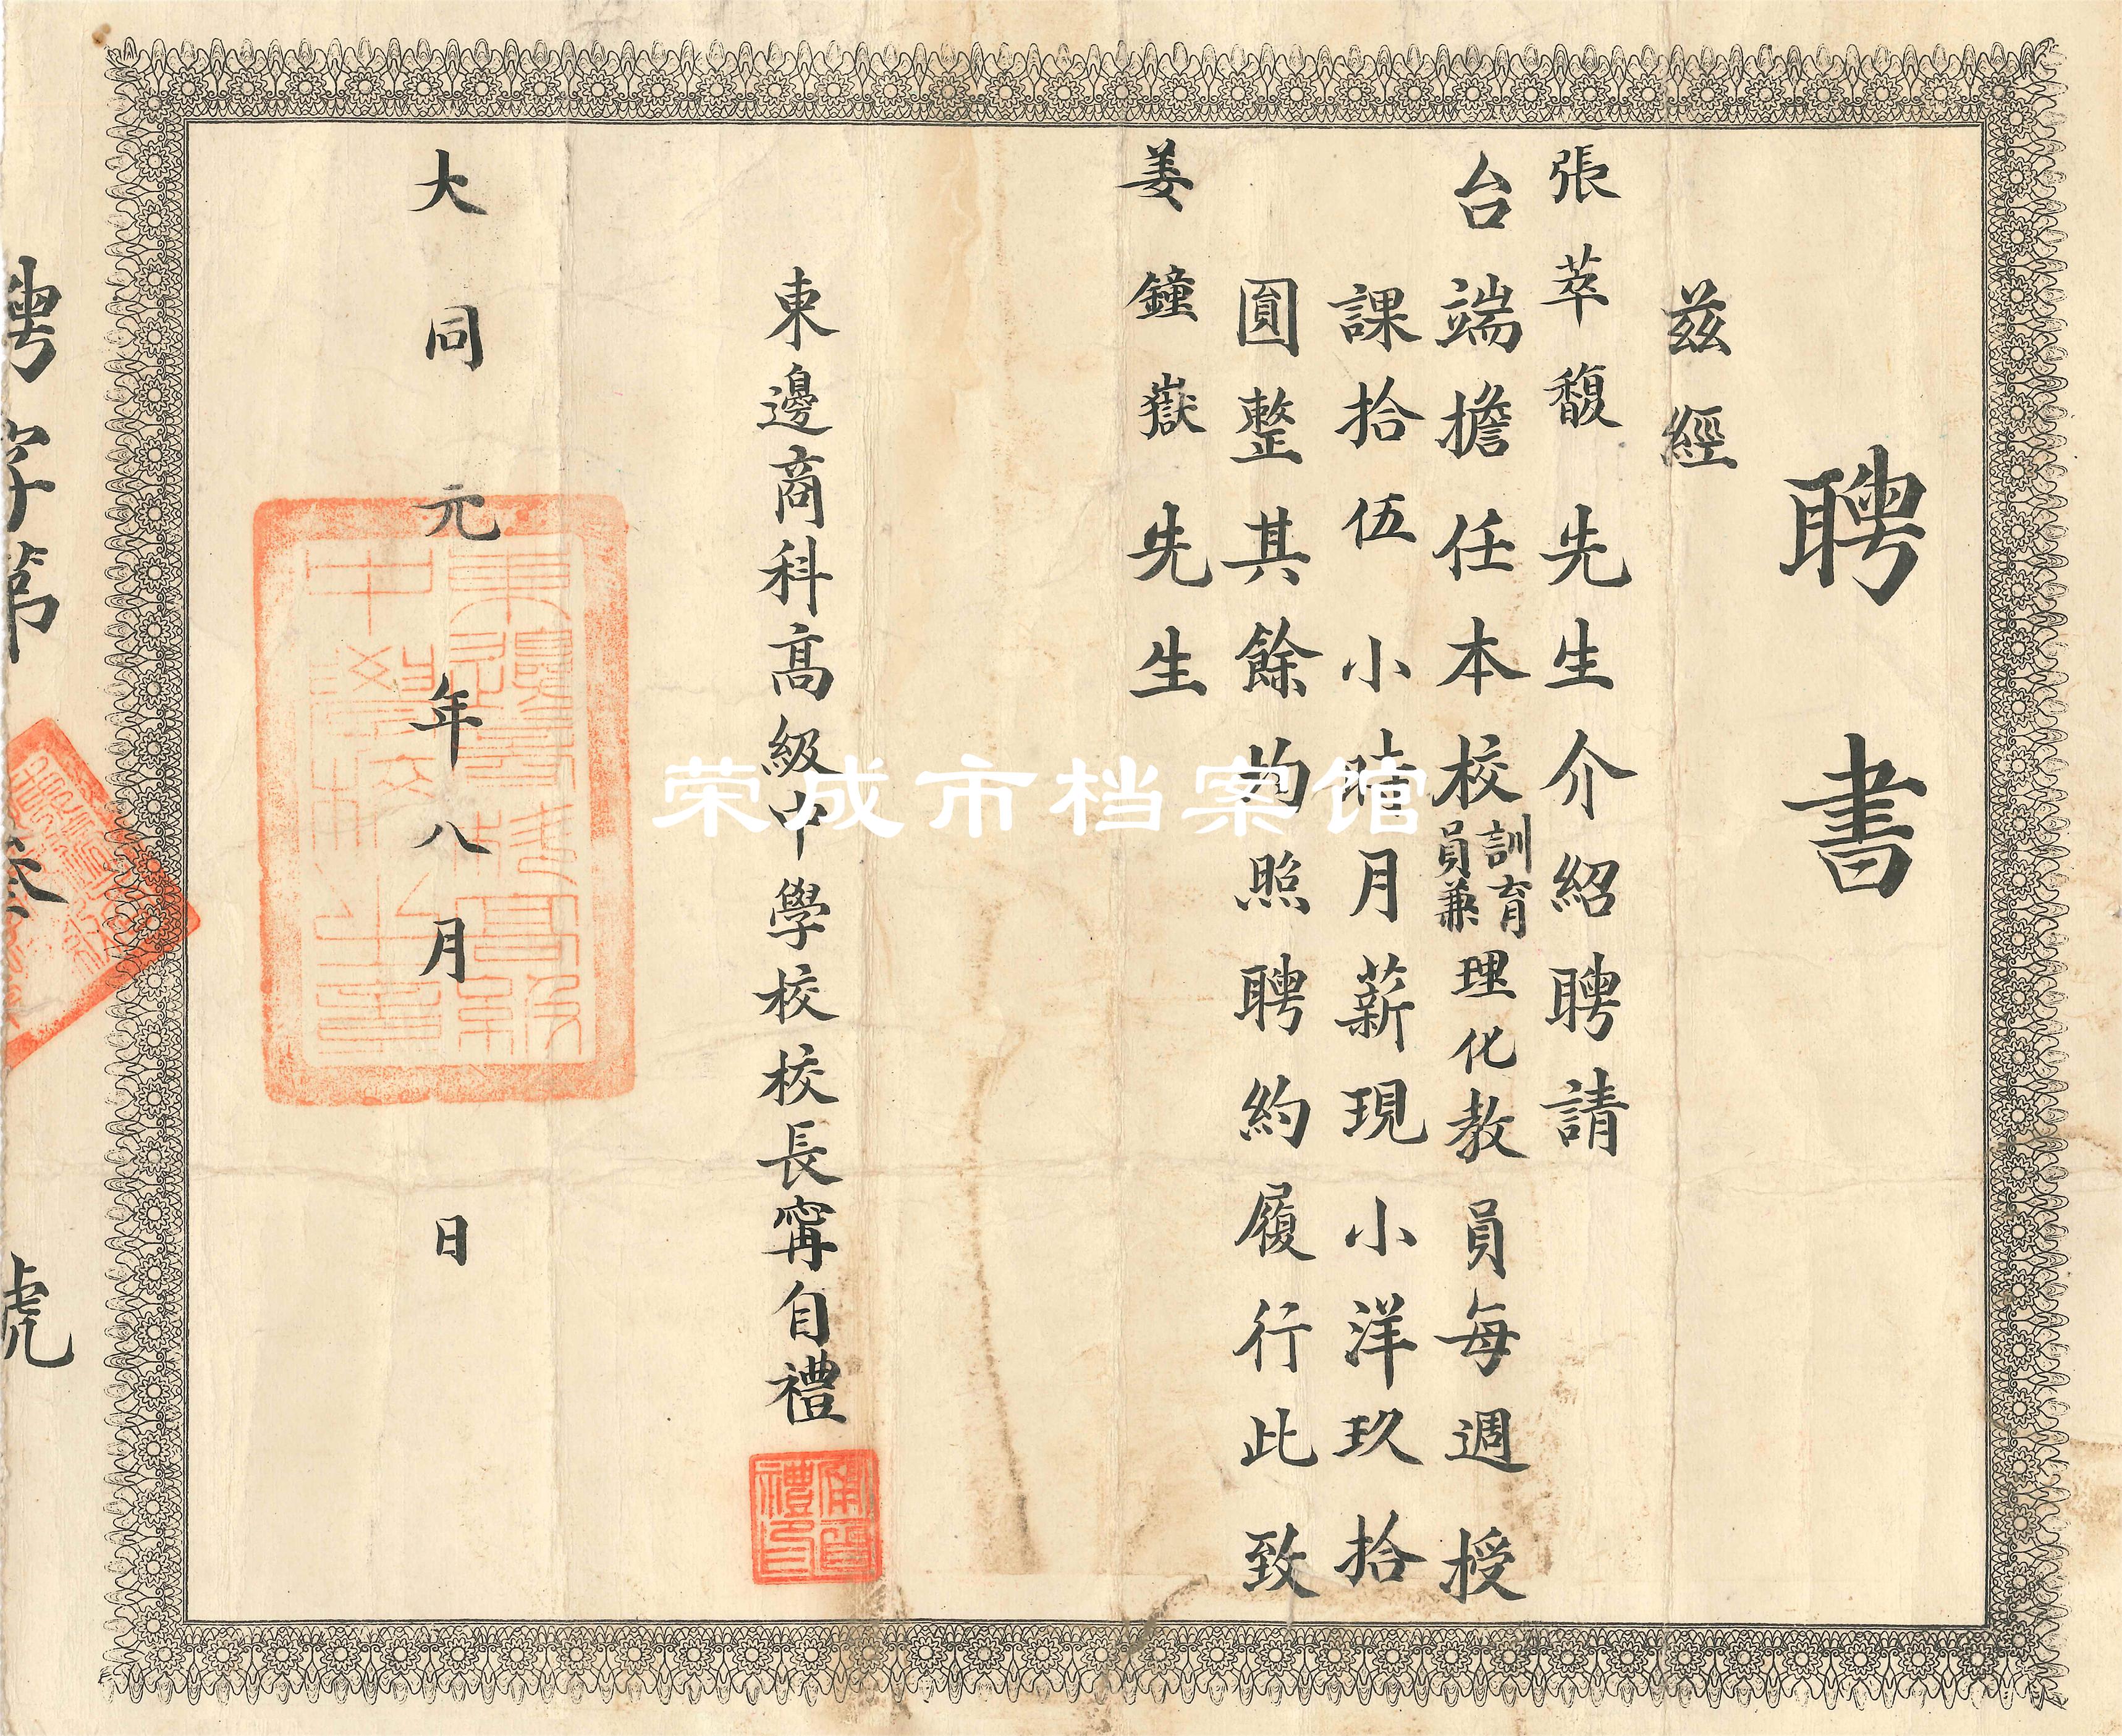 聘書
兹經
張萃馥先生介紹聘請
台端擔任本校訓育員兼理化教員每週授
課拾伍小時月薪現小洋玖拾
圓整其餘均照聘約履行此致
姜鐘嶽先生
東邊商科高級中學校校長甯自禮
大同元年八月 日
聘字第叁 號
東邊商科高級
中學校之章
荣成市档案馆